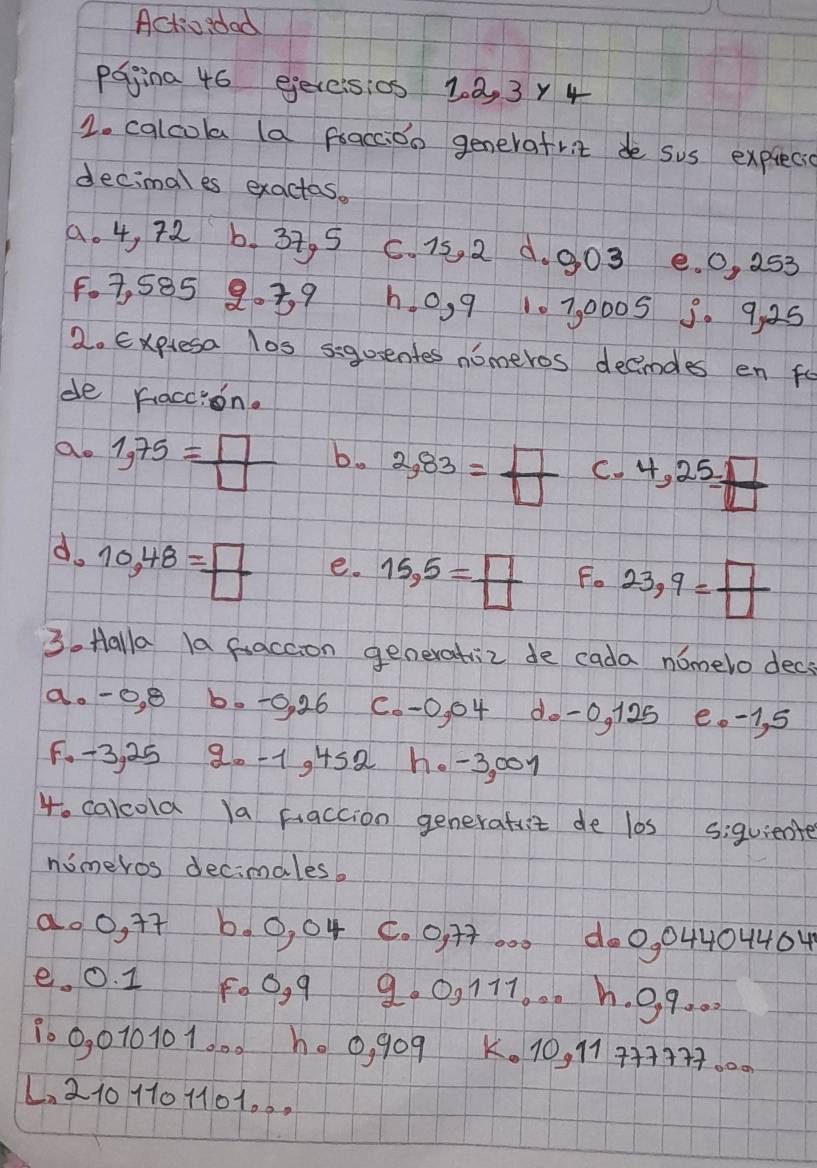 Actividad
página 46 ejercisios 1,2,3 y 4
1. calcula la fracción generatriz de sus exprecio
decimales exactas.
a. 4,72 b. 37,5 c. 15,2 d. 903 e. 0,253
F. 7,585 g. 7,9 h. 0,9 i. 7,0005 j. 9,25
2. Expresa los siguientes números decimales en fo
de fracción.
a. 1,75 = b. 2,83 = c. 4,25 =
d. 10,48 = e. 15,5 = F. 23,9 =
3. Halla la fraccion generatriz de cada número deci
a. -0,8 b. -0,26 c. -0,04 d. -0,125 e. -1,5
F. -3,25 g. -1,452 h. -3,001
4. calcula la fraccion generatriz de los siguiente
números decimales.
a. 0,77 b. 0,04 c. 0,77... d. 0,04404404
e. 0.1 F. 0,9 g. 0,111... h. 0,9...
i. 0,010101... h. 0,909 K. 10,11777777...
L. 2101101101...